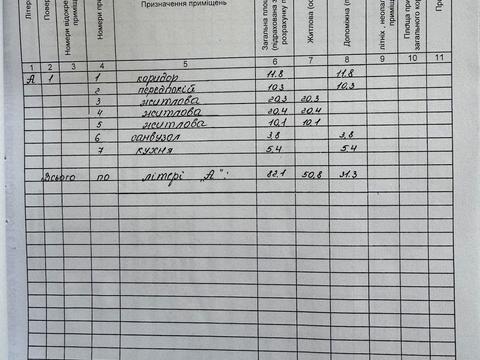 Літер
Повер
Номери відокре приміщ
Номери пр
Призначення приміщень
Загальна площ (підрахована з розрахунку п
Житлова (ос
Допоміжна (п
літніх , неопал приміщ
Площа при загального кор
Пр
1 2 3 4 5 6 7 8 9 10 11
А 1 1 коридор 11.8 11.8
2 передпокій 10.3 10.3
3 житлова 20.3 20.3
4 житлова 20.4 20.4
5 житлова 10.1 10.1
6 санвузол 3.8 3.8
7 кухня 5.4 5.4
Всього по літері „А": 82.1 50.8 31.3